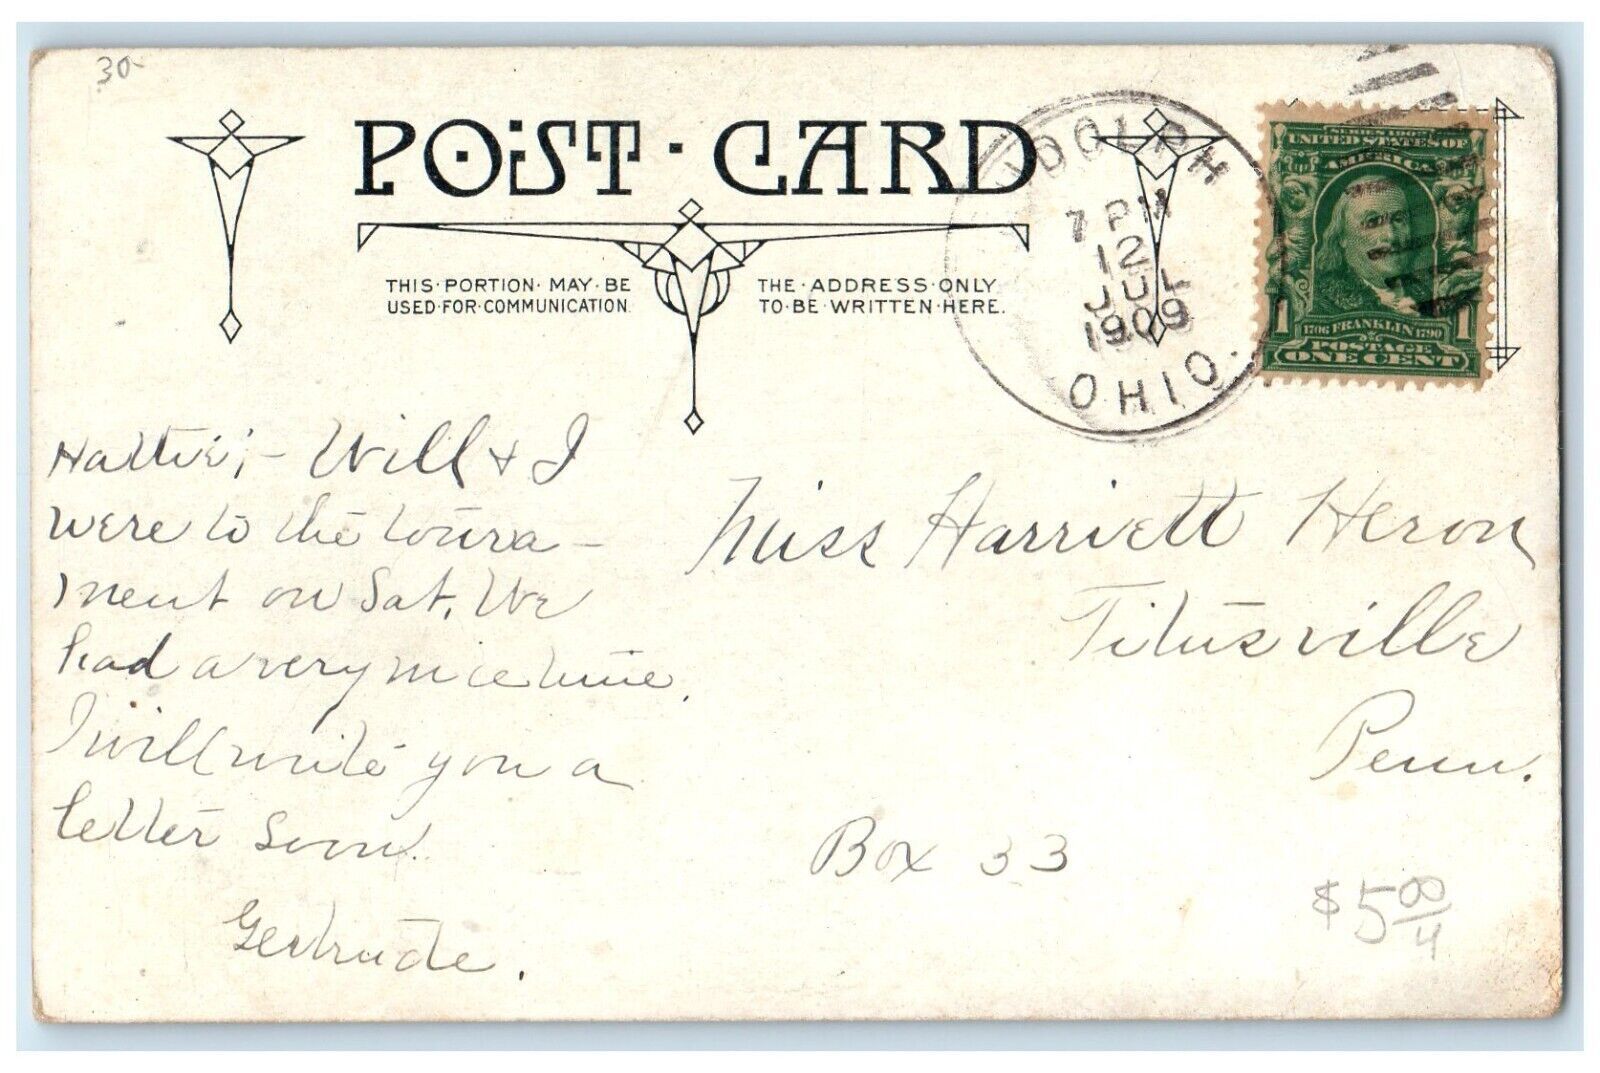 30-
POST·CARD
THIS·PORTION·MAY·BE
USED·FOR·COMMUNICATION
THE·ADDRESS·ONLY
TO·BE·WRITTEN·HERE.
DOLPH
7 PM
12
JUL
1909
OHIO.
UNITED STATES OF
AMERICA
1 1706 FRANKLIN 1790 1
POSTAGE
ONE CENT
Hattie;- Will & I
were to the tourna-
ment on Sat. We
had a very nice time.
I will write you a
letter soon.
Gertrude.
Miss Harriett Heron
Titusville
Penn.
Box 33
$5 00/4